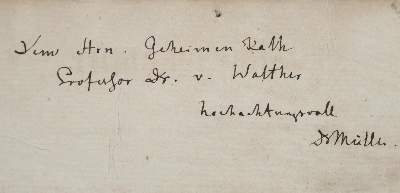 Dem Hrn. Geheimen Rath
Professor Dr. v. Walther
hochachtungsvoll
Dr Müller.